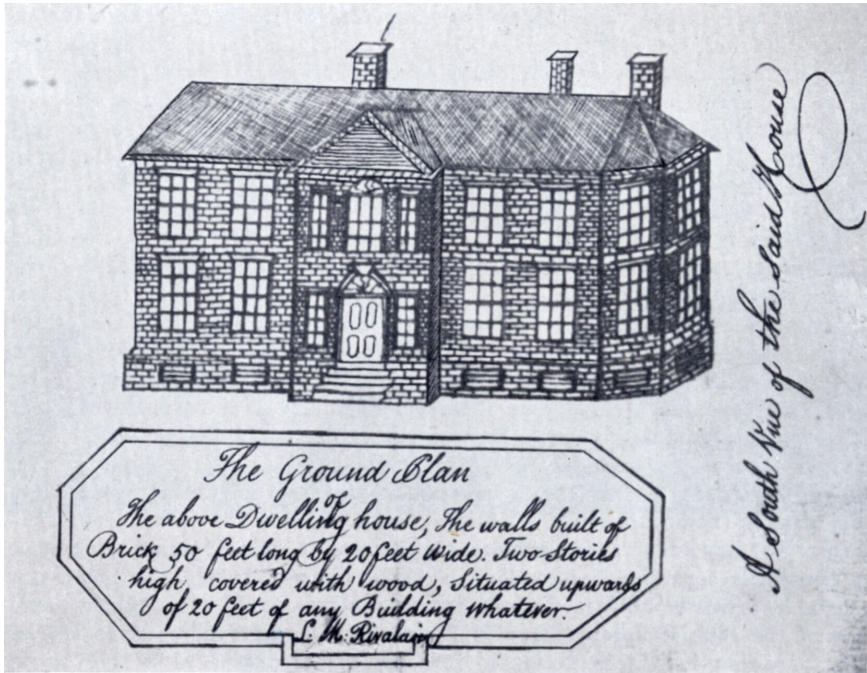 The Ground Plan
of
The above Dwelling house, The walls built of
Brick 50 feet long by 20 feet wide. Two Stories
high covered with wood, Situated upwards
of 20 feet of any Building whatever
L. M. Rivalain
A South Vue of the said House